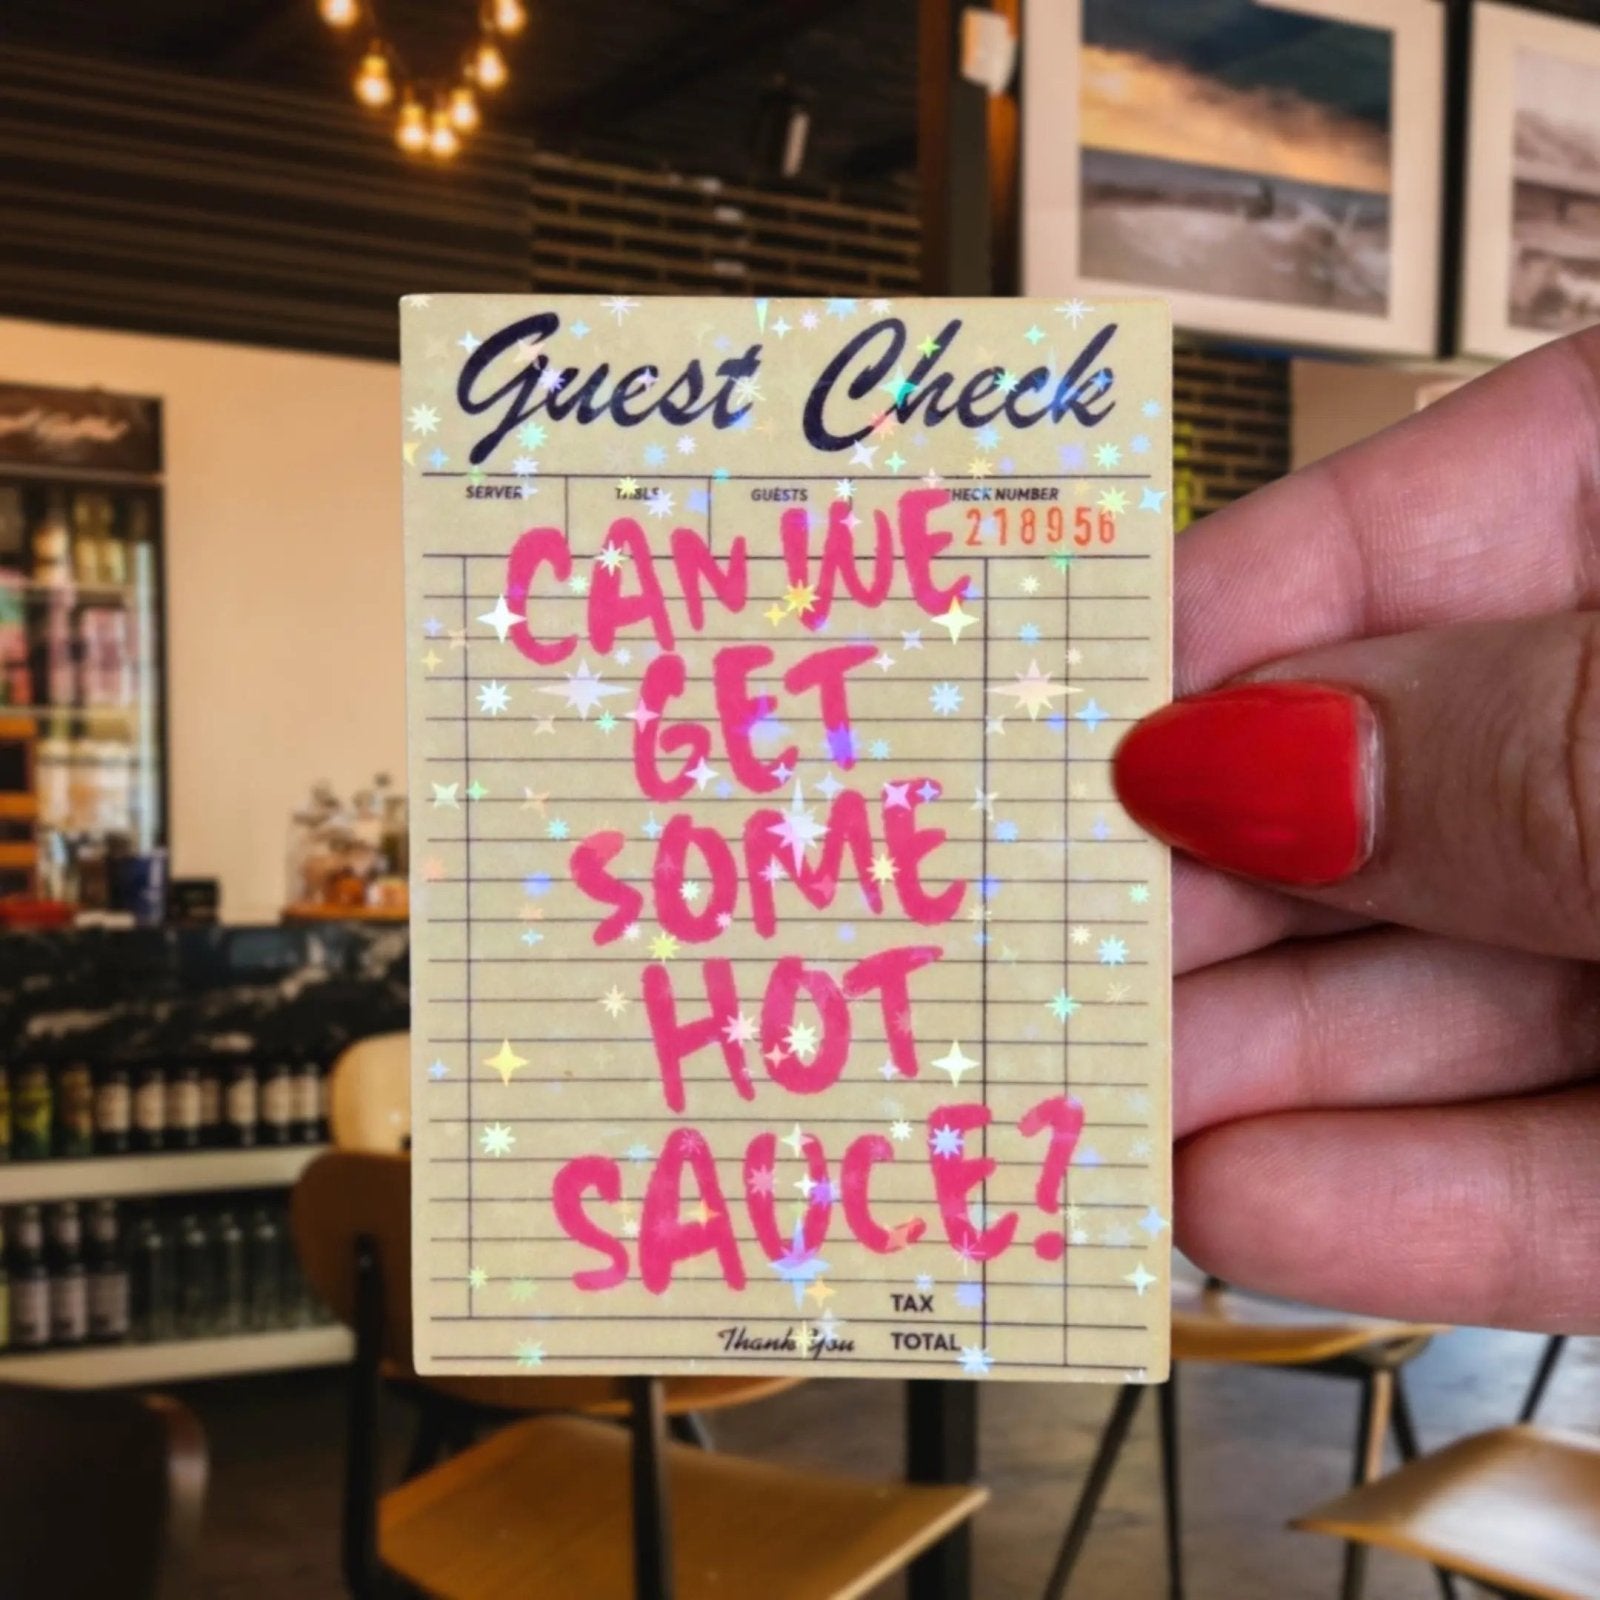 Guest Check
SERVER TABLE GUESTS CHECK NUMBER
218956
CAN WE
GET
SOME
HOT
SAUCE?
TAX
Thank You TOTAL